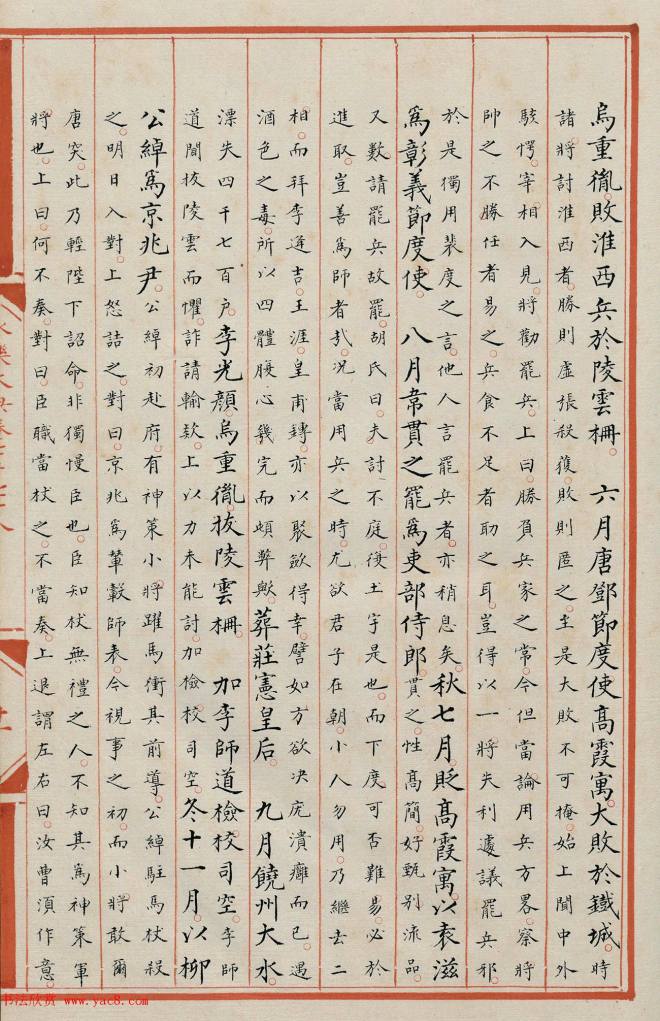 烏重胤敗淮西兵於陵雲柵。 六月唐鄧節度使高霞寓大敗於鐵城。時
諸將討淮西者。勝則虛張殺獲。敗則匿之。至是大敗不可掩。始上聞中外
駭愕。宰相入見將勸罷兵。上曰。勝負兵家之常。今但當論用兵方畧。察將
帥之不勝任者易之。兵食不足者助之耳。豈得以一將失利遽議罷兵邪。
於是獨用裴度之言。他人言罷兵者。亦稍息矣。秋七月貶高霞寓。以袁滋
爲彰義節度使。 八月韋貫之罷爲吏部侍郎。貫之性高簡。好甄别流品。
又數請罷兵。故罷。胡氏曰。夫討不庭。復土宇是也。而下度可否難易。必於
進取。豈善爲師者哉。况當用兵之時。尤欲君子在朝。小人勿用。乃繼去二
相。而拜李逢吉。王涯。皇甫鎛。亦以聚歛得幸。譬如方欲决疣潰癰而已。遇
酒色之毒。所以四體腹心幾完而頓弊歟。葬莊憲皇后。 九月饒州大水。
漂失四千七百户。李光顔。烏重胤。拔陵雲柵。 加李師道檢校司空。李師
道聞拔陵雲而懼。詐請輸款。上以力未能討。加檢校司空。冬十一月。以柳
公綽爲京兆尹。公綽初赴府。有神策小將躍馬衝其前導。公綽駐馬杖殺
之。明日入對。上怒詰之。對曰。京兆爲輦轂師表。今視事之初。而小將敢爾
唐突。此乃輕陛下詔命。非獨慢臣也。臣知杖無禮之人。不知其爲神策軍
將也。上曰。何不奏。對曰。臣職當杖之。不當奏。上退謂左右曰。汝曹須作意。
书法欣赏 www.yac8.com